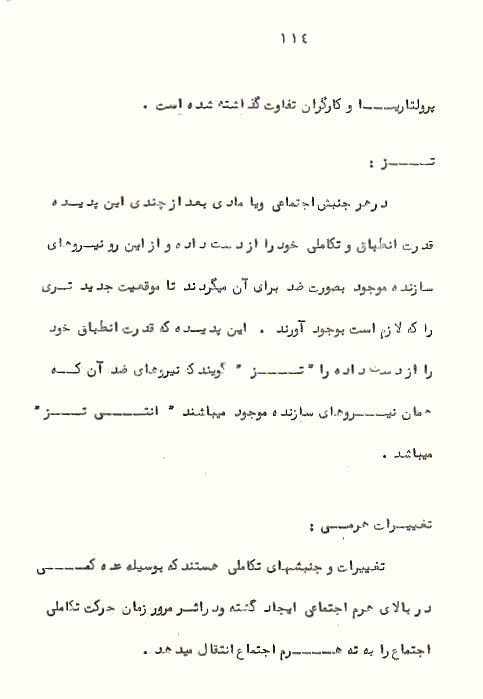 ١١٤
پرولتاریـــا و کارگران تفاوت گذاشته شده است .
تــــز :
درهر جنبش اجتماعی ویا مادی بعد از چندی این پدیـــده
قدرت انطباق و تکاملی خود را از دست داده و از این رو نیـروهای
سازنده موجود بصورت ضد برای آن میگردند تا موقعیت جدید تــری
را که لازم است بوجود آورند . این پدیــده که قدرت انطباق خود
را از دست داده را " تـــــز " گویند که نیروهای ضد آن کـــه
همان نیــــروهای سازنده موجود میباشند " انتــــی تـــز "
میباشد .
تغییـرات هرمـــی :
تغییرات و جنبشهای تکاملی هستند که بوسیله عده کمــــی
در بالای هرم اجتماعی ایجاد گشته ودراثـر مرور زمان حرکت تکاملی
اجتماع را به ته هـــــرم اجتماع انتقال میدهد .